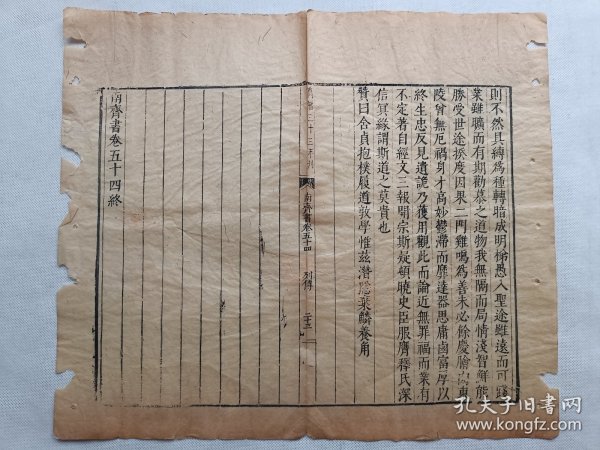 則不然具縛爲種轉暗成明梯愚入聖途雖遠而可踐
業雖曠而有期勸慕之道物我無隔而局情淺智鮮能
勝受世途揆度因果二門雞鳴爲善未必餘慶膾
陵曾無厄禍身才高妙鬱滯而靡達器思庸鹵富厚以
終生忠反見遺詭乃獲用觀此而論近無罪福而業有
不定著自經文三報開宗斯疑頓曉史臣服膺釋氏深
信冥緣謂斯道之莫貴也
贊曰含貞抱樸履道敦學惟茲潛隱棄鱗養角
南齊書卷五十四 列傳
南齊書卷五十四終
孔夫子旧书网
www.kongfz.com